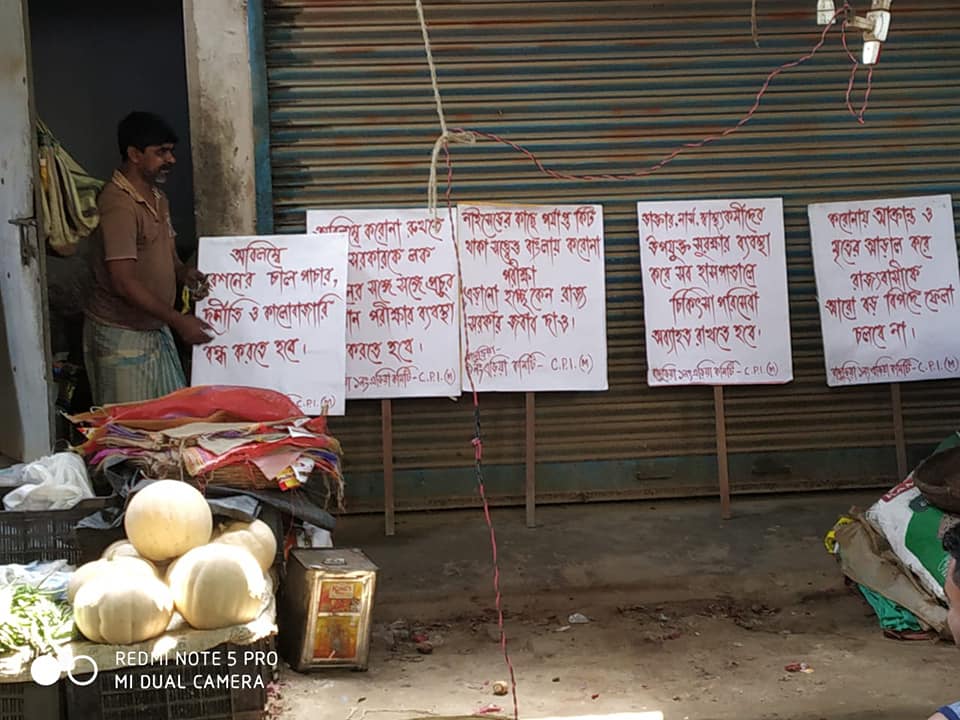 অবিলম্বে
রেশনের চাল পাচার,
দুর্নীতি ও কালোবাজারি
বন্ধ করতে হবে।
C.P.I. (M)
অবিলম্বে করোনা রুখতে
সরকারকে লক
সঙ্গে সঙ্গে প্রচুর
পরীক্ষার ব্যবস্থা
করতে হবে।
১নং এরিয়া কমিটি - C.P.I. (M)
নাইসেডের কাছে পর্যাপ্ত কিট
থাকা সত্ত্বেও বাংলায় করোনা
পরীক্ষা
এড়ানো হচ্ছে কেন রাজ্য
সরকার জবাব দাও।
১নং এরিয়া কমিটি - C.P.I. (M)
ডাক্তার, নার্স, স্বাস্থ্যকর্মীদের
উপযুক্ত সুরক্ষার ব্যবস্থা
করে সব হাসপাতালে
চিকিৎসা পরিষেবা
অব্যাহত রাখতে হবে।
১নং এরিয়া কমিটি - C.P.I. (M)
করোনায় আক্রান্ত ও
মৃতের আড়াল করে
রাজ্যবাসীকে
আরো বড় বিপদে ফেলা
চলবে না।
১নং এরিয়া কমিটি - C.P.I. (M)
REDMI NOTE 5 PRO
MI DUAL CAMERA